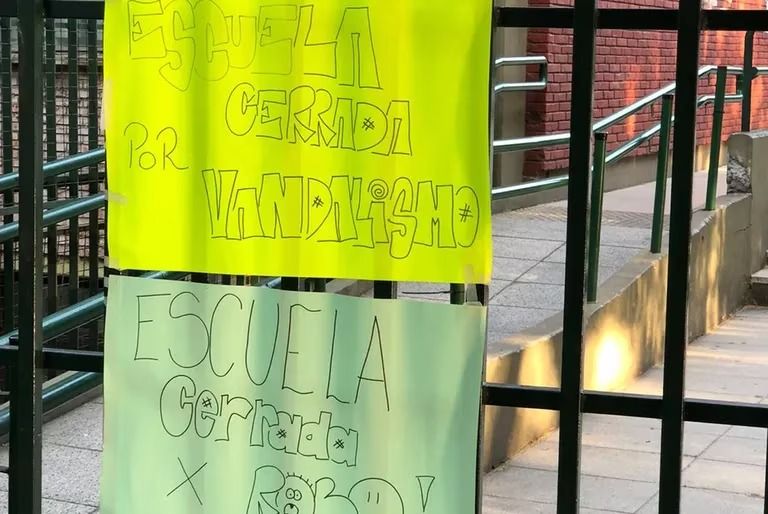 ESCUELA
CERRADA
POR
VANDALISMO
ESCUELA
Cerrada
X ROBO!